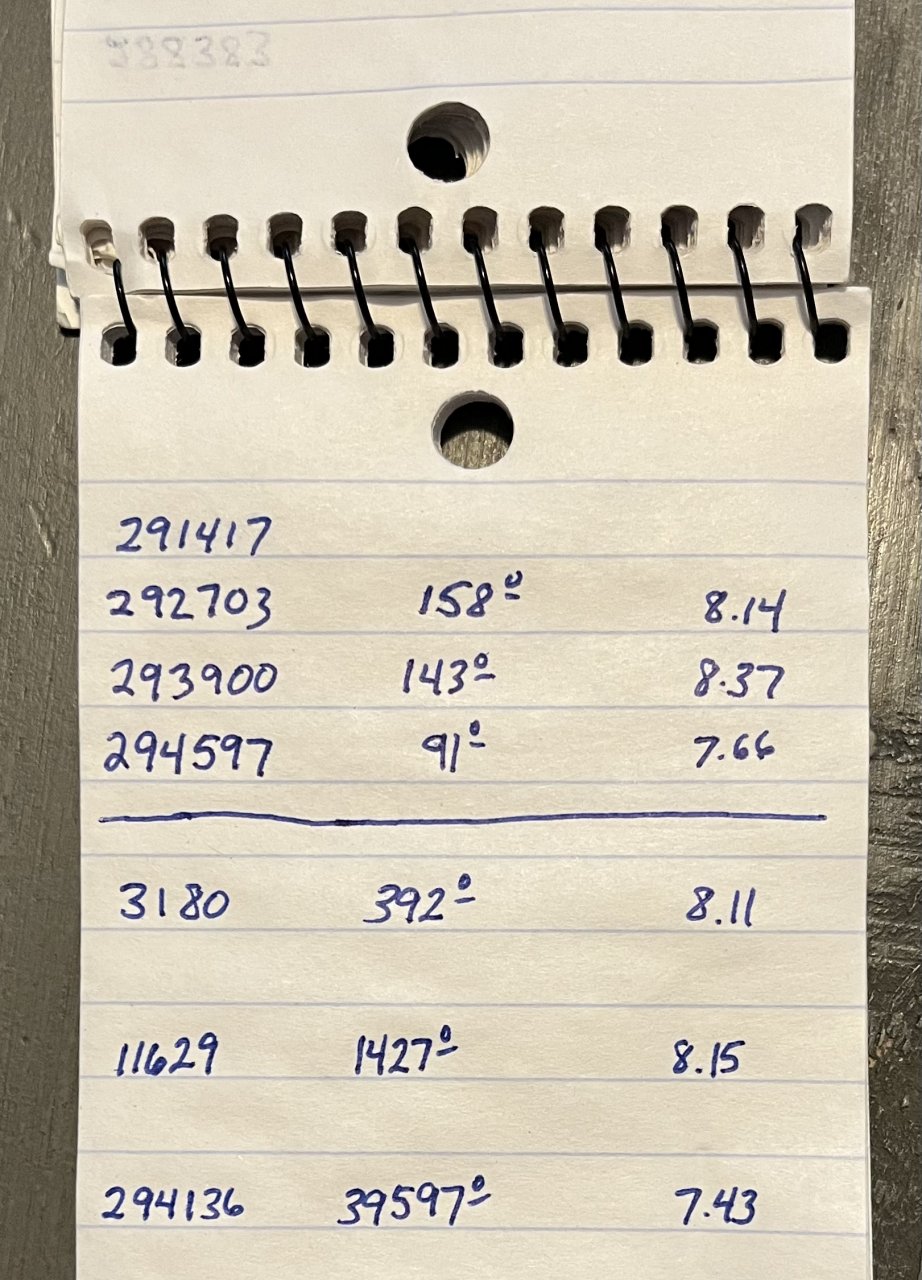 291417
292703 158º 8.14
293900 143º 8.37
294597 91º 7.66
3180 392º 8.11
11629 1427º 8.15
294136 39597º 7.43